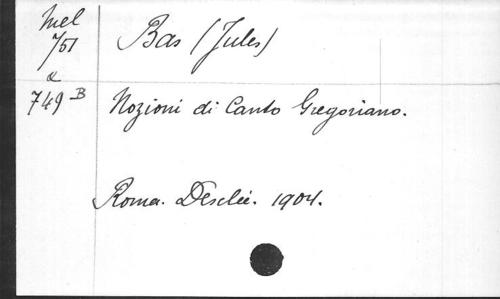 Mel
751
a
749 B
Bas (Jules)
Nozioni di Canto Gregoriano.
Roma. Desclée. 1904.